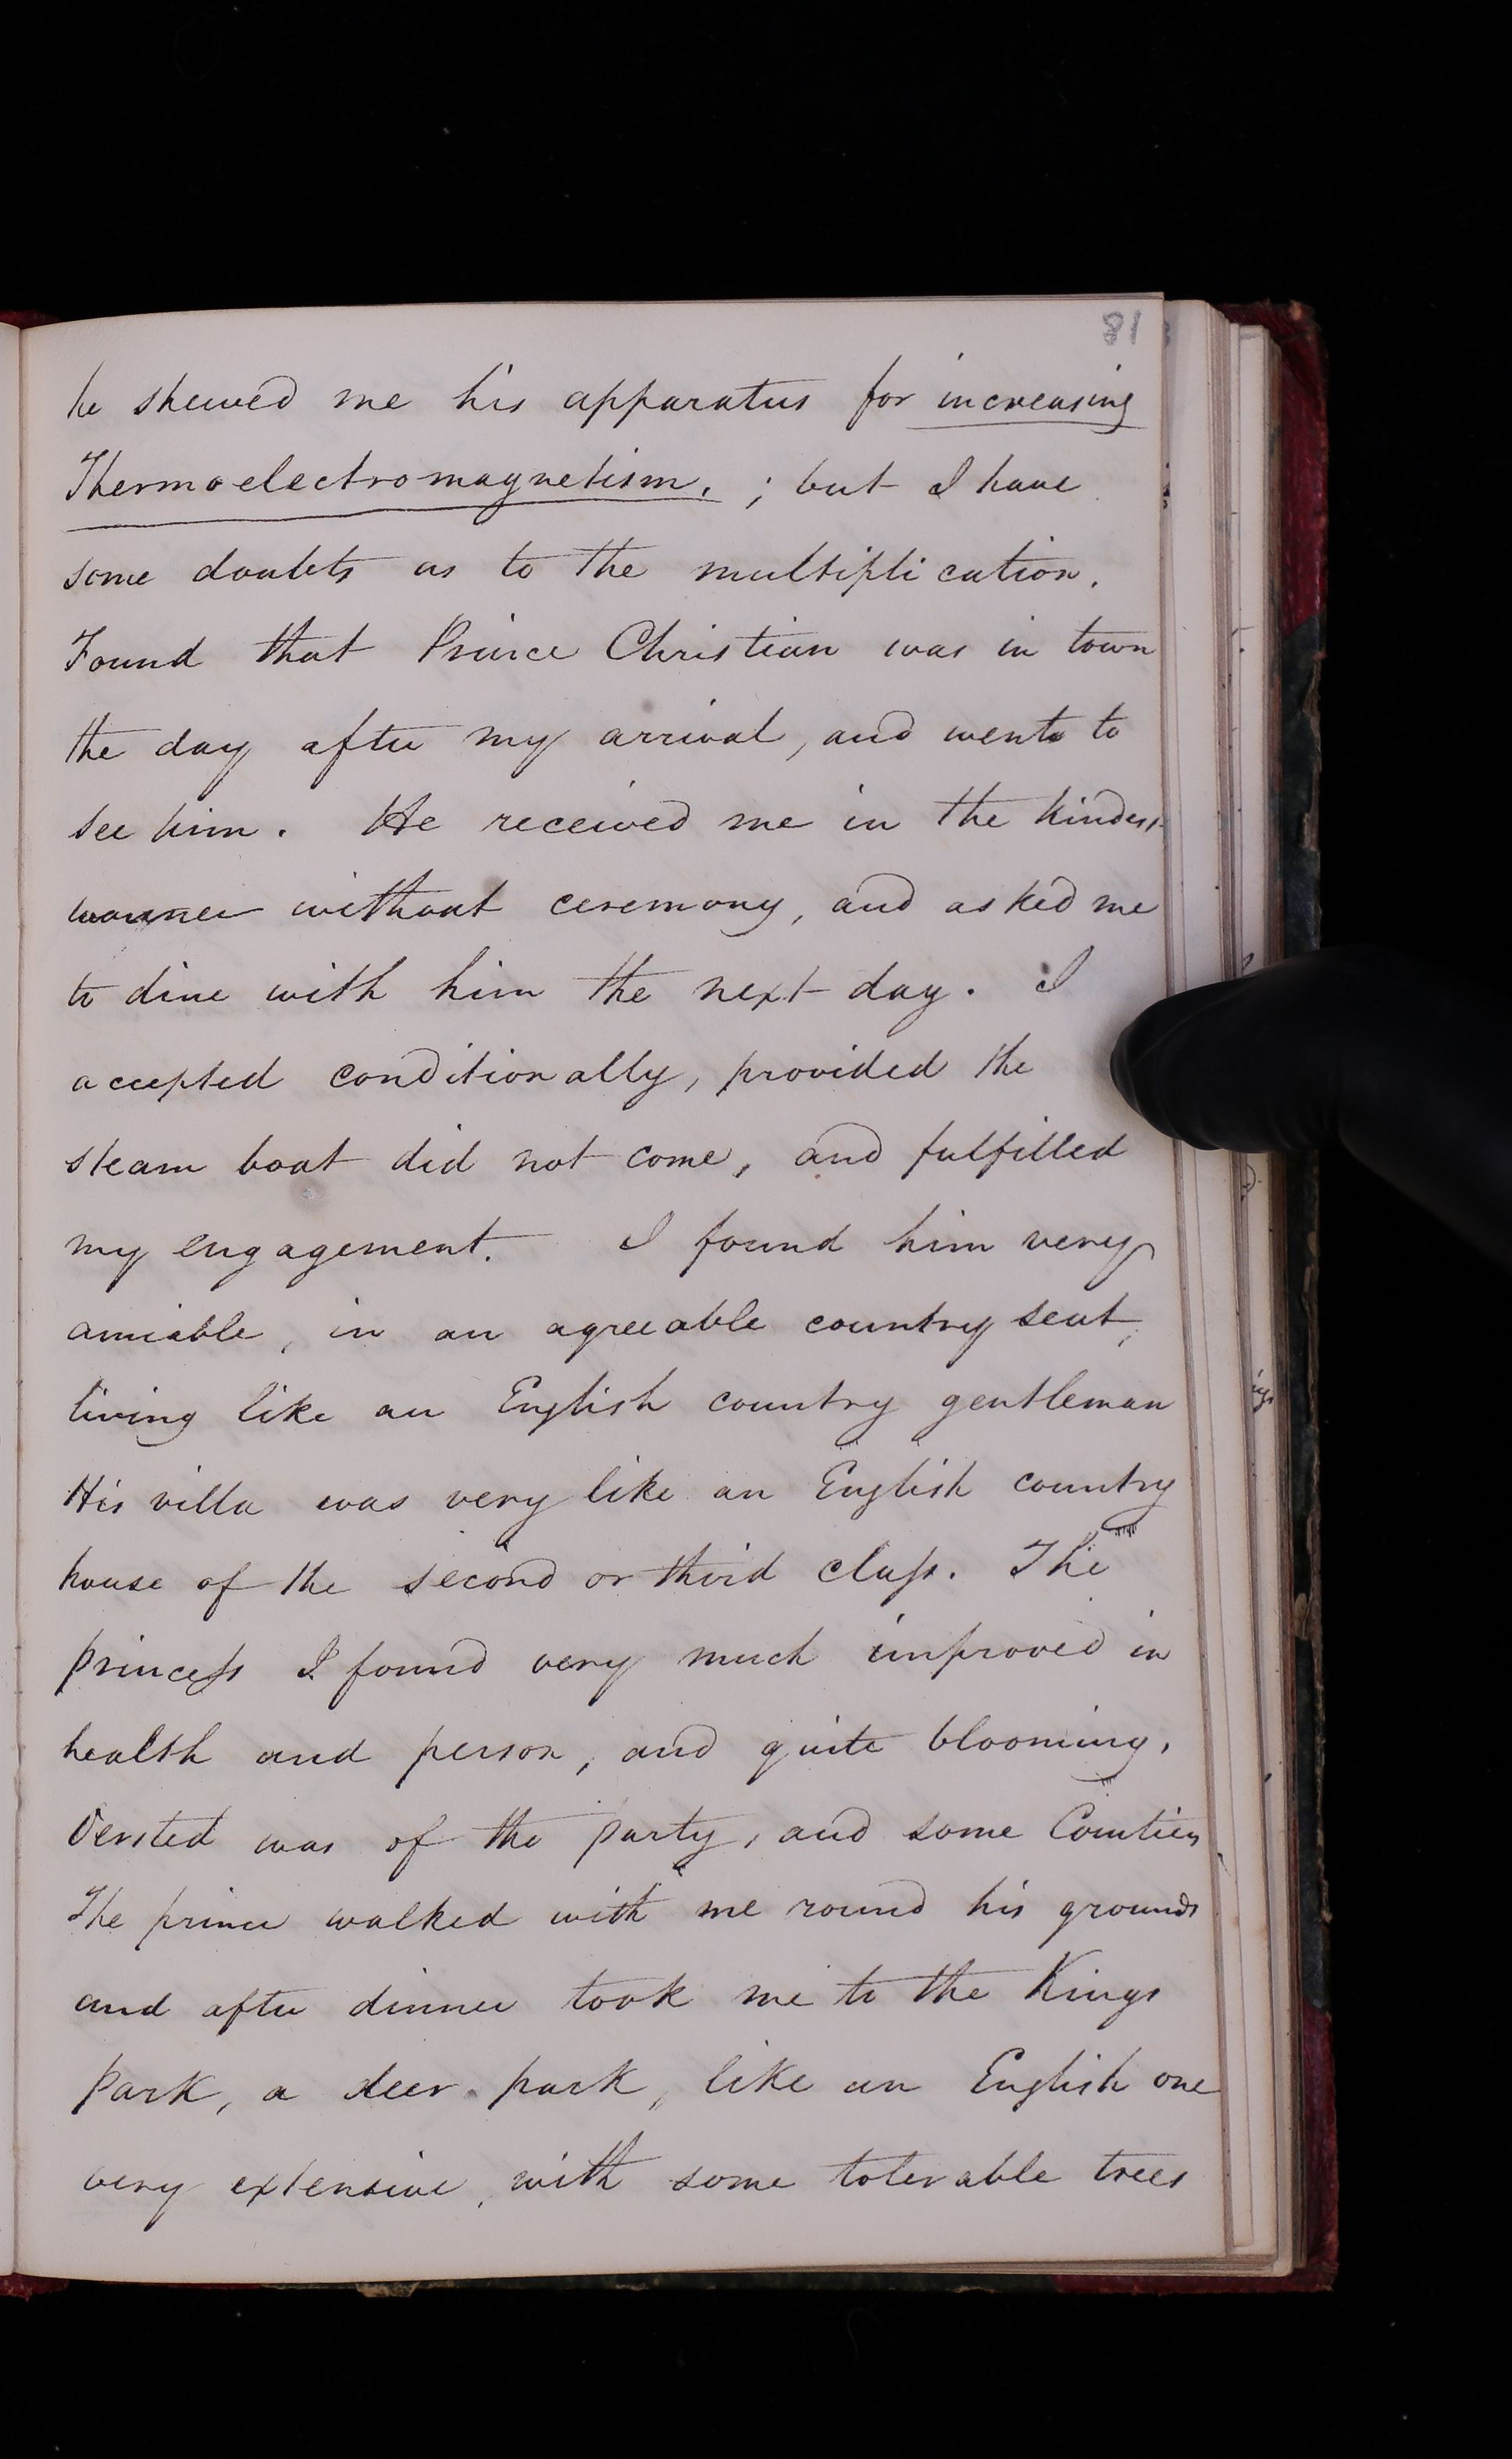 81
he shewed me his apparatus for increasing
Thermoelectromagnetism. ; but I have
some doubts as to the multiplication.
Found that Prince Christian was in town
the day after my arrival, and went to
see him. He received me in the kindest
manner without ceremony, and asked me
to dine with him the next day. I
accepted conditionally, provided the
steam boat did not come, and fulfilled
my engagement. I found him very
amiable, in an agreeable country seat,
living like an English country gentleman
His villa was very like an English country
house of the second or third class. The
princess I found very much improved in
health and person, and quite blooming,
Oersted was of the party, and some
The prince walked with me round his grounds
and after dinner took me to the Kings
park, a deer park, like an English one
very extensive, with some tolerable trees